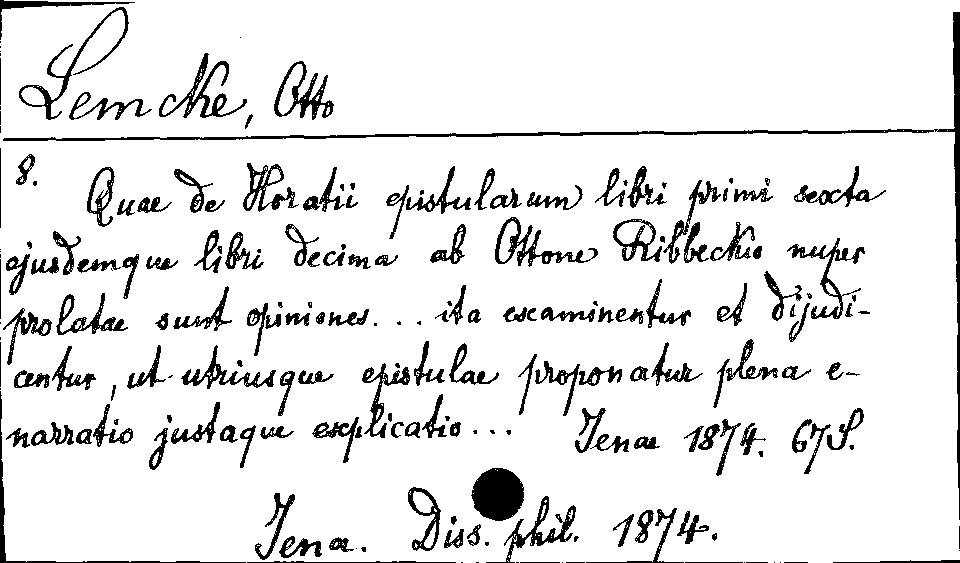 Lemcke, Otto
8.
Quae de Horatii epistularum libri primi sexta
ejusdemque libri decima ab Ottone Ribbeckio nuper
prolatae sunt opiniones... ita examinentur et dijudi-
centur, ut utriusque epistulae proponatur plena e-
narratio justaque explicatio...
Jenae 1874. 67 S.
Jena. Diss. phil. 1874.